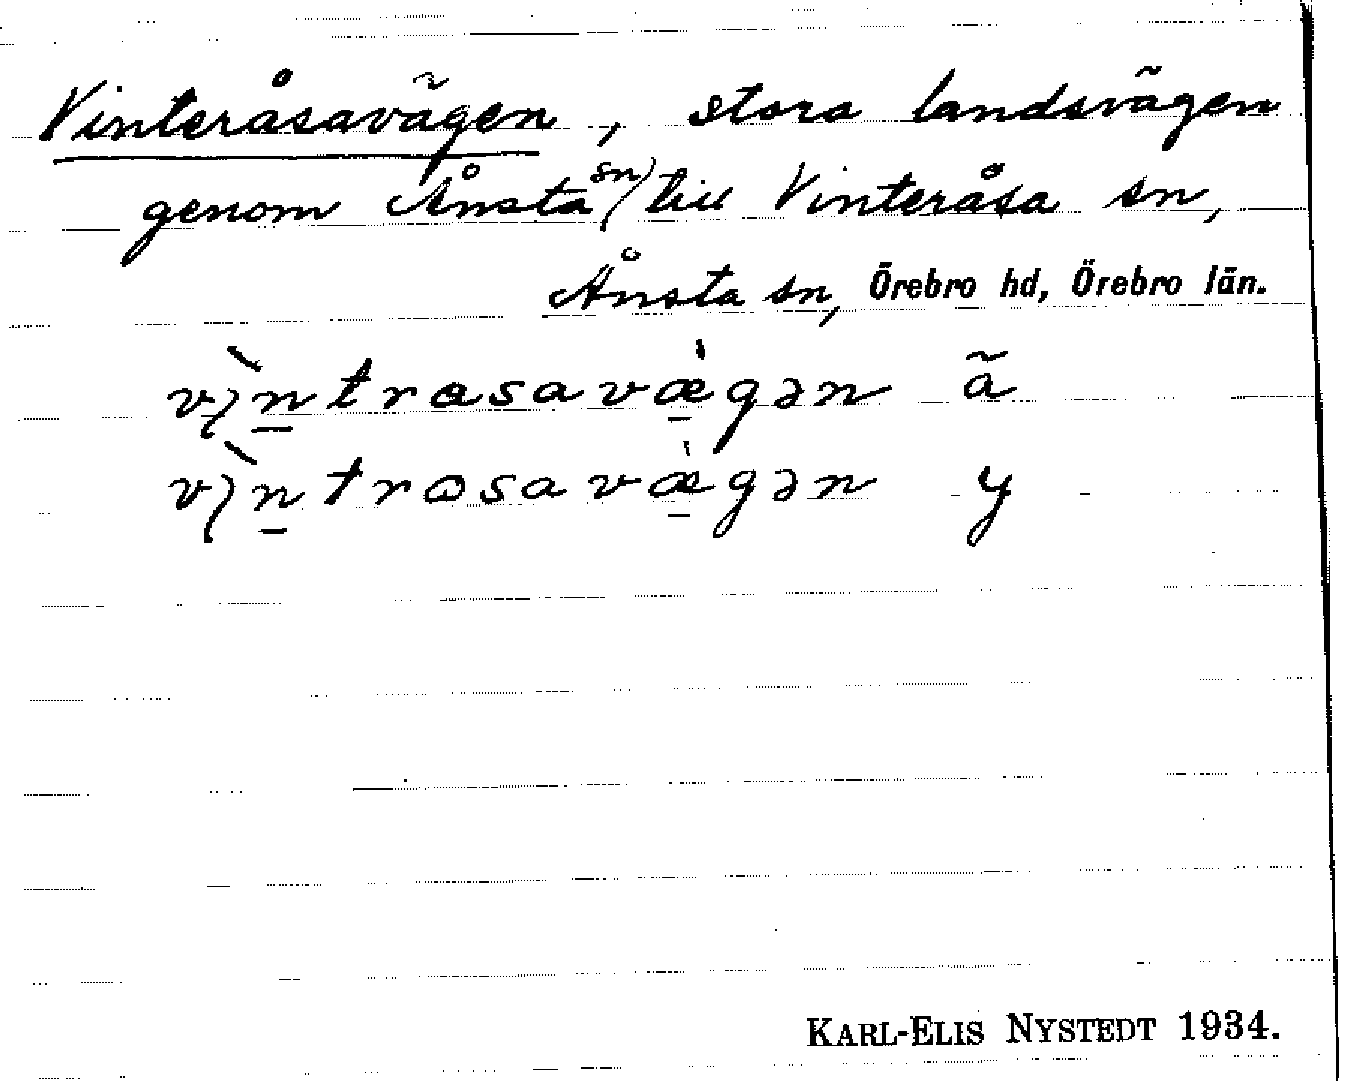 Vinteråsavägen, stora landsvägen
genom Ånsta sn till Vinteråsa sn,
Ånsta sn, Örebro hd, Örebro län.
vi̊ntrasavægən ä
vi̊ntrasavægən y
KARL-ELIS NYSTEDT 1934.